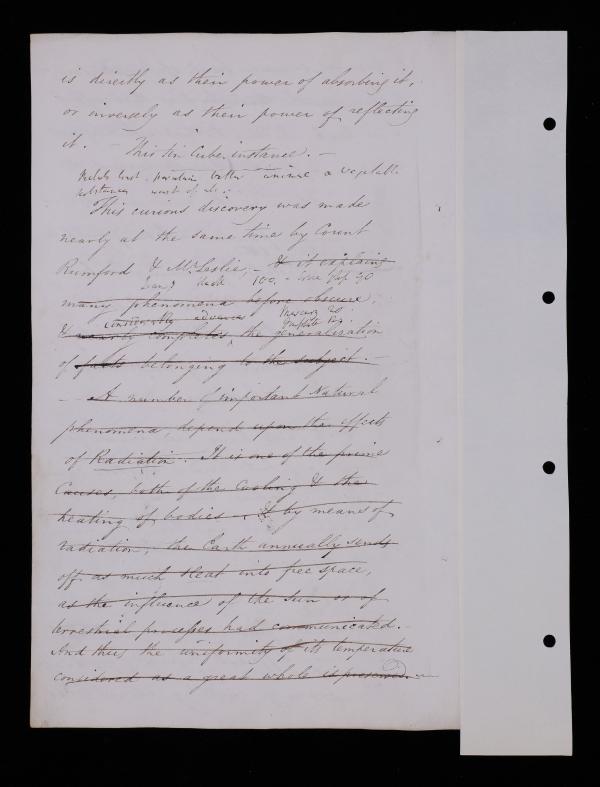 is directly as their power of absorbing it,
or inversely as their power of reflecting
it. – This tin Cube instance. –
Metals least better animal & vegetable
substances most of all
This curious discovery was made
nearly at the same time by Count
Rumford & Mr Leslie, – & it explains
100. – 90
many phenomena before obscure,
considerably advances Mercury 20
& nearly completes the generalization
of facts belonging to the subject. –
– A number of important Natural
phenomena, depend upon the effects
of Radiation. It is one of the prime
Causes, both of the Cooling & the
heating of bodies – & by means of
radiation, the Earth annually sends
off as much Heat into free space,
as the influence of the Sun or of
terrestrial processes had communicated. –
And thus the uniformity of its temperature
considered as a great whole is preserved. –